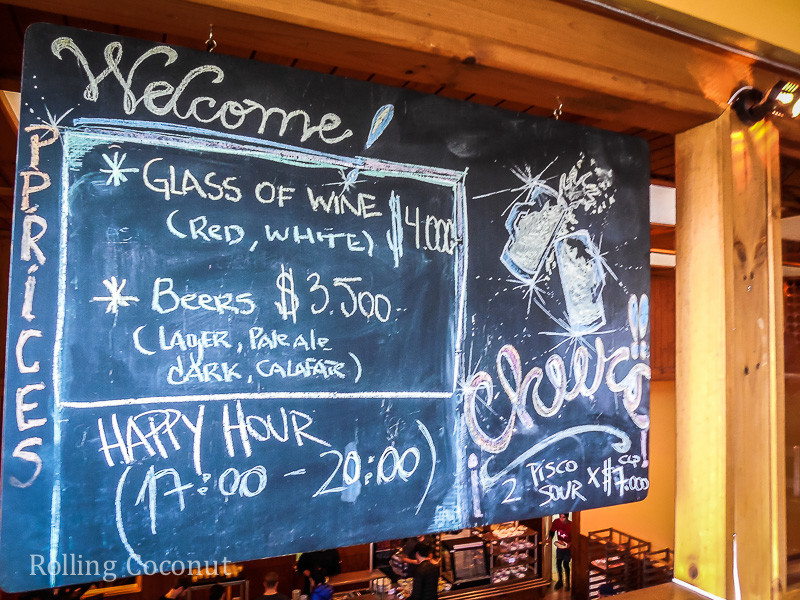 Welcome!
PPRICES
* GLASS OF WINE $4.000
(RED, WHITE)
* BEERS $3.500
(LAGER, PALE ALE
DARK, CALAFATE)
HAPPY HOUR
(17:00 - 20:00)
Cheers!
¡ 2 PISCO SOUR X CLP $7.000 !
Rolling Coconut